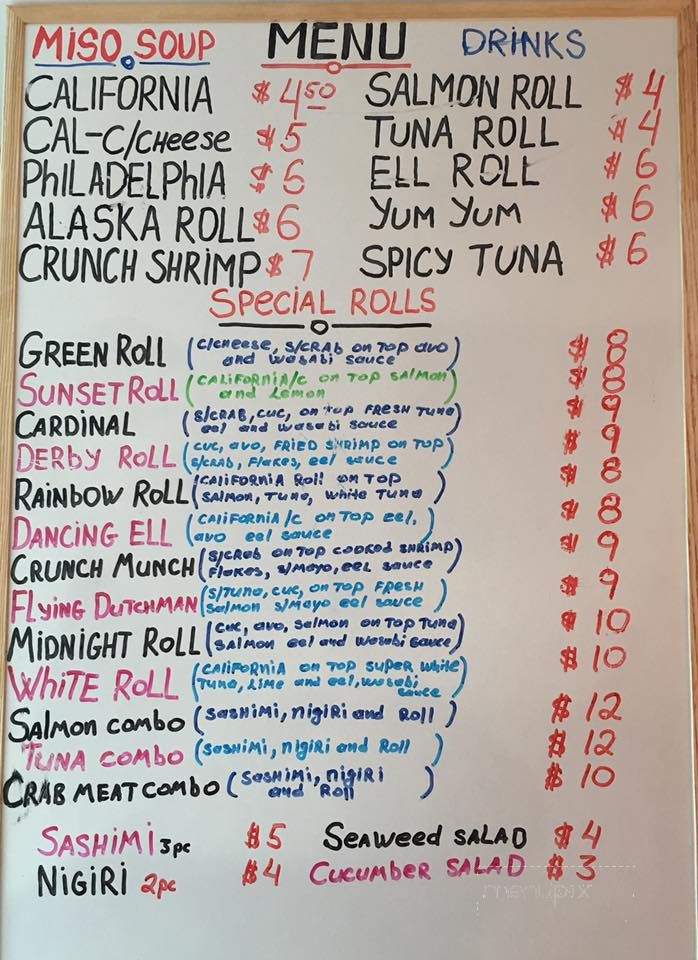 MISO SOUP MENU DRINKS
CALIFORNIA $4.50 SALMON ROLL $4
CAL-C/CHEESE $5 TUNA ROLL $4
PHILADELPHIA $5 ELL ROLL $6
ALASKA ROLL $6 YUM YUM $6
CRUNCH SHRIMP $7 SPICY TUNA $6
SPECIAL ROLLS
GREEN ROLL (C/CHEESE, S/CRAB ON TOP AVO $8
AND WASABI SAUCE)
SUNSET ROLL (CALIFORNIA/C ON TOP SALMON $8
AND LEMON)
CARDINAL (S/CRAB, CUC, ON TOP FRESH TUNA $9
EEL AND WASABI SAUCE)
DERBY ROLL (CUC, AVO, FRIED SHRIMP ON TOP $9
S/CRAB, FLAKES, EEL SAUCE)
RAINBOW ROLL (CALIFORNIA ROLL ON TOP $8
SALMON, TUNA, WHITE TUNA)
DANCING ELL (CALIFORNIA/C ON TOP EEL, $8
AVO EEL SAUCE)
CRUNCH MUNCH (S/CRAB ON TOP COOKED SHRIMP $9
FLAKES, S/MAYO, EEL SAUCE)
FLYING DUTCHMAN (S/TUNA, CUC, ON TOP FRESH $9
SALMON S/MAYO EEL SAUCE)
MIDNIGHT ROLL (CUC, AVO, SALMON ON TOP TUNA $10
SALMON EEL AND WASABI SAUCE)
WHITE ROLL (CALIFORNIA ON TOP SUPER WHITE $10
TUNA, LIME AND EEL, WASABI
SAUCE)
SALMON COMBO (SASHIMI, NIGIRI AND ROLL) $12
TUNA COMBO (SASHIMI, NIGIRI AND ROLL) $12
CRAB MEAT COMBO (SASHIMI, NIGIRI $10
AND ROLL)
SASHIMI 3PC $5 SEAWEED SALAD $4
NIGIRI 2PC $4 CUCUMBER SALAD $3
menupix